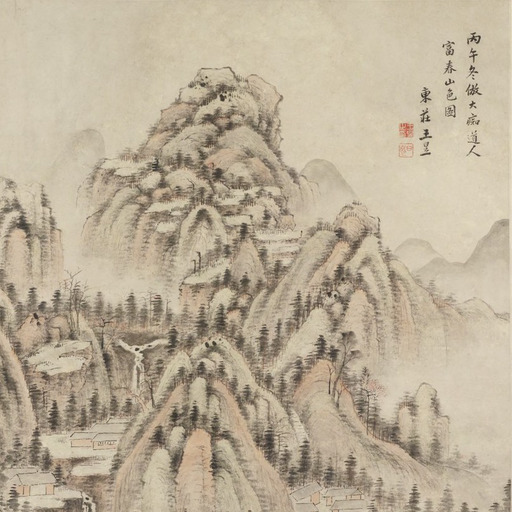 丙午冬倣大癡道人
富春山色圖
東莊王昱